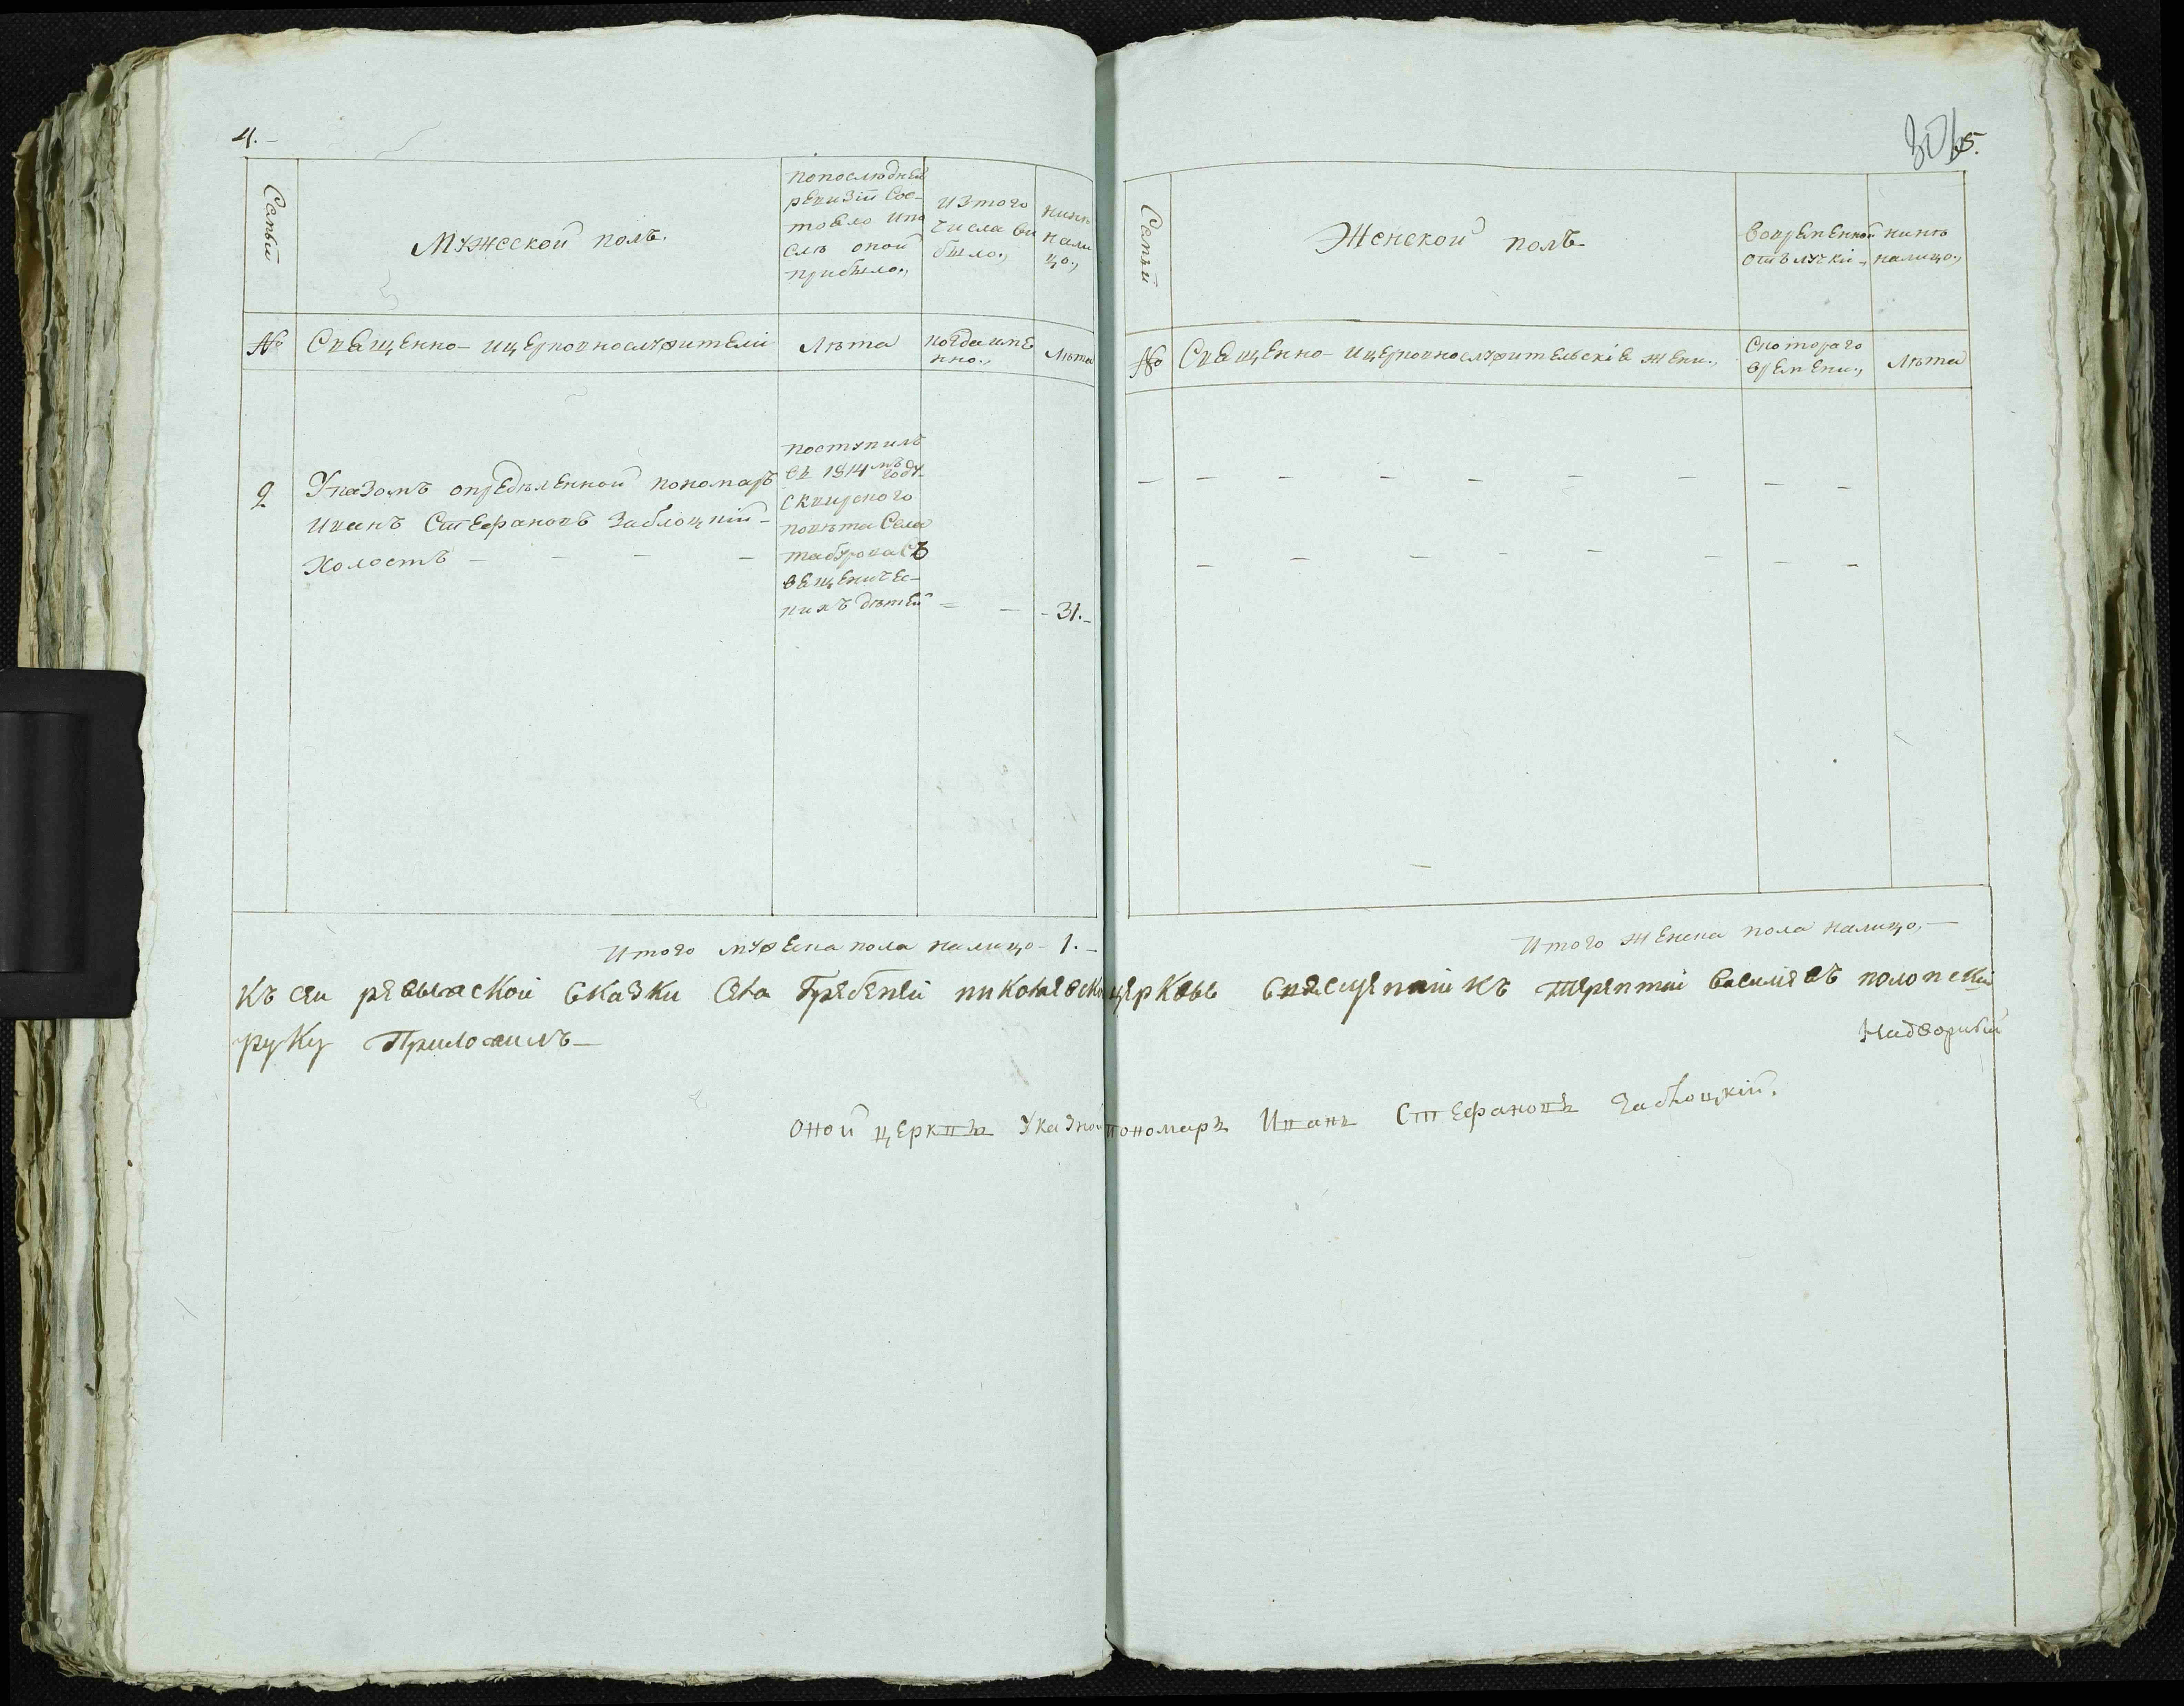 4.-
Семьи
Мужеской полъ.
попослюдней
ревизіи сос-
тояло ипо
слѣ оной
прибыло.,
Изтого
числа ви
было.,
нинѣ
нали
цо.,
№
Священно- ицерковнослужители
Лѣта
когдаиме
нно.,
Лѣта
2
Указомъ опредѣленной пономарь
Иванъ Стефановъ Заблоцкій-
Холостъ - - - -
поступилъ
въ 1814мъ году
Сквирского
повѣта Села
табурова съ
священичес-
кихъ дѣтей - - - 31.-
Итого мужеска пола налицо- 1.-
5.
Семьи
Женской полъ-
Вовременной
отълучки.,
нинѣ
налицо.,
№
Священно- Ицерковнослужительскіе жени.,
Скотораго
времени.,
Лѣта
Итого женска пола налицо,-
Къ сеи ревызской сказки села Гребеней николаевской церквы священникъ василевъ
руку Приложилъ-
Оной церквѣ Указной пономарь Иванъ Стефановъ Заблоцкій.